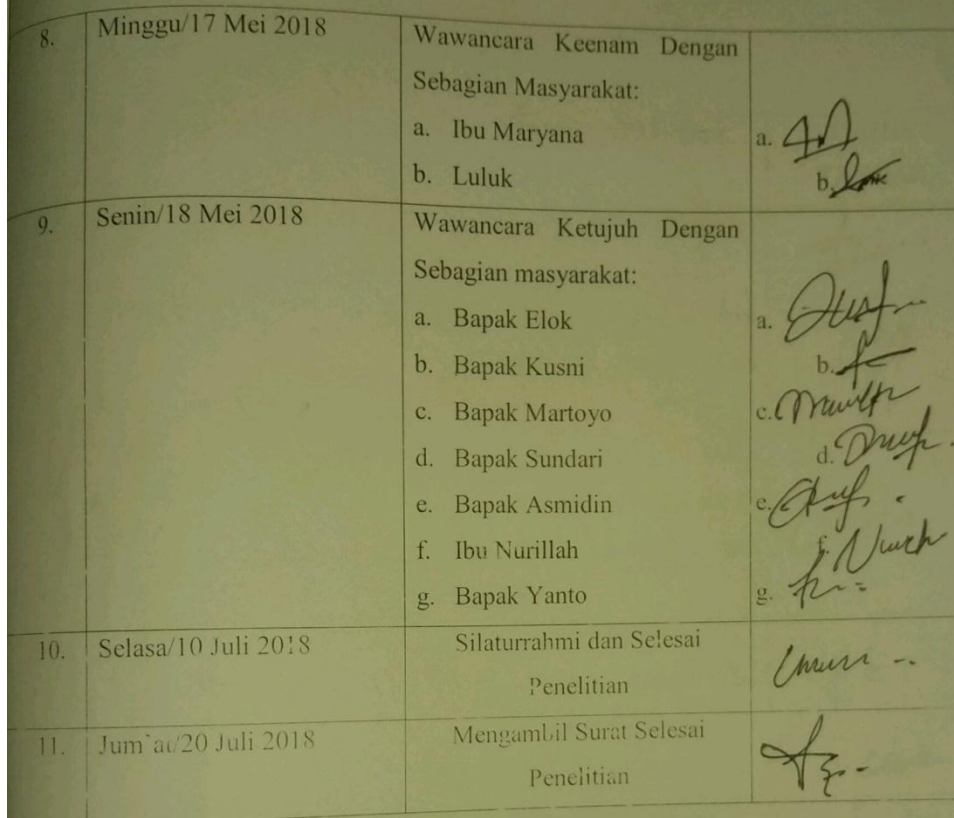 8. Minggu/17 Mei 2018 Wawancara Keenam Dengan
Sebagian Masyarakat:
a. Ibu Maryana a.
b. Luluk b.
9. Senin/18 Mei 2018 Wawancara Ketujuh Dengan
Sebagian masyarakat:
a. Bapak Elok a.
b. Bapak Kusni b.
c. Bapak Martoyo c.
d. Bapak Sundari d.
e. Bapak Asmidin e.
f. Ibu Nurillah f.
g. Bapak Yanto g.
10. Selasa/10 Juli 2018 Silaturrahmi dan Selesai
Penelitian
11. Jum`at/20 Juli 2018 Mengambil Surat Selesai
Penelitian